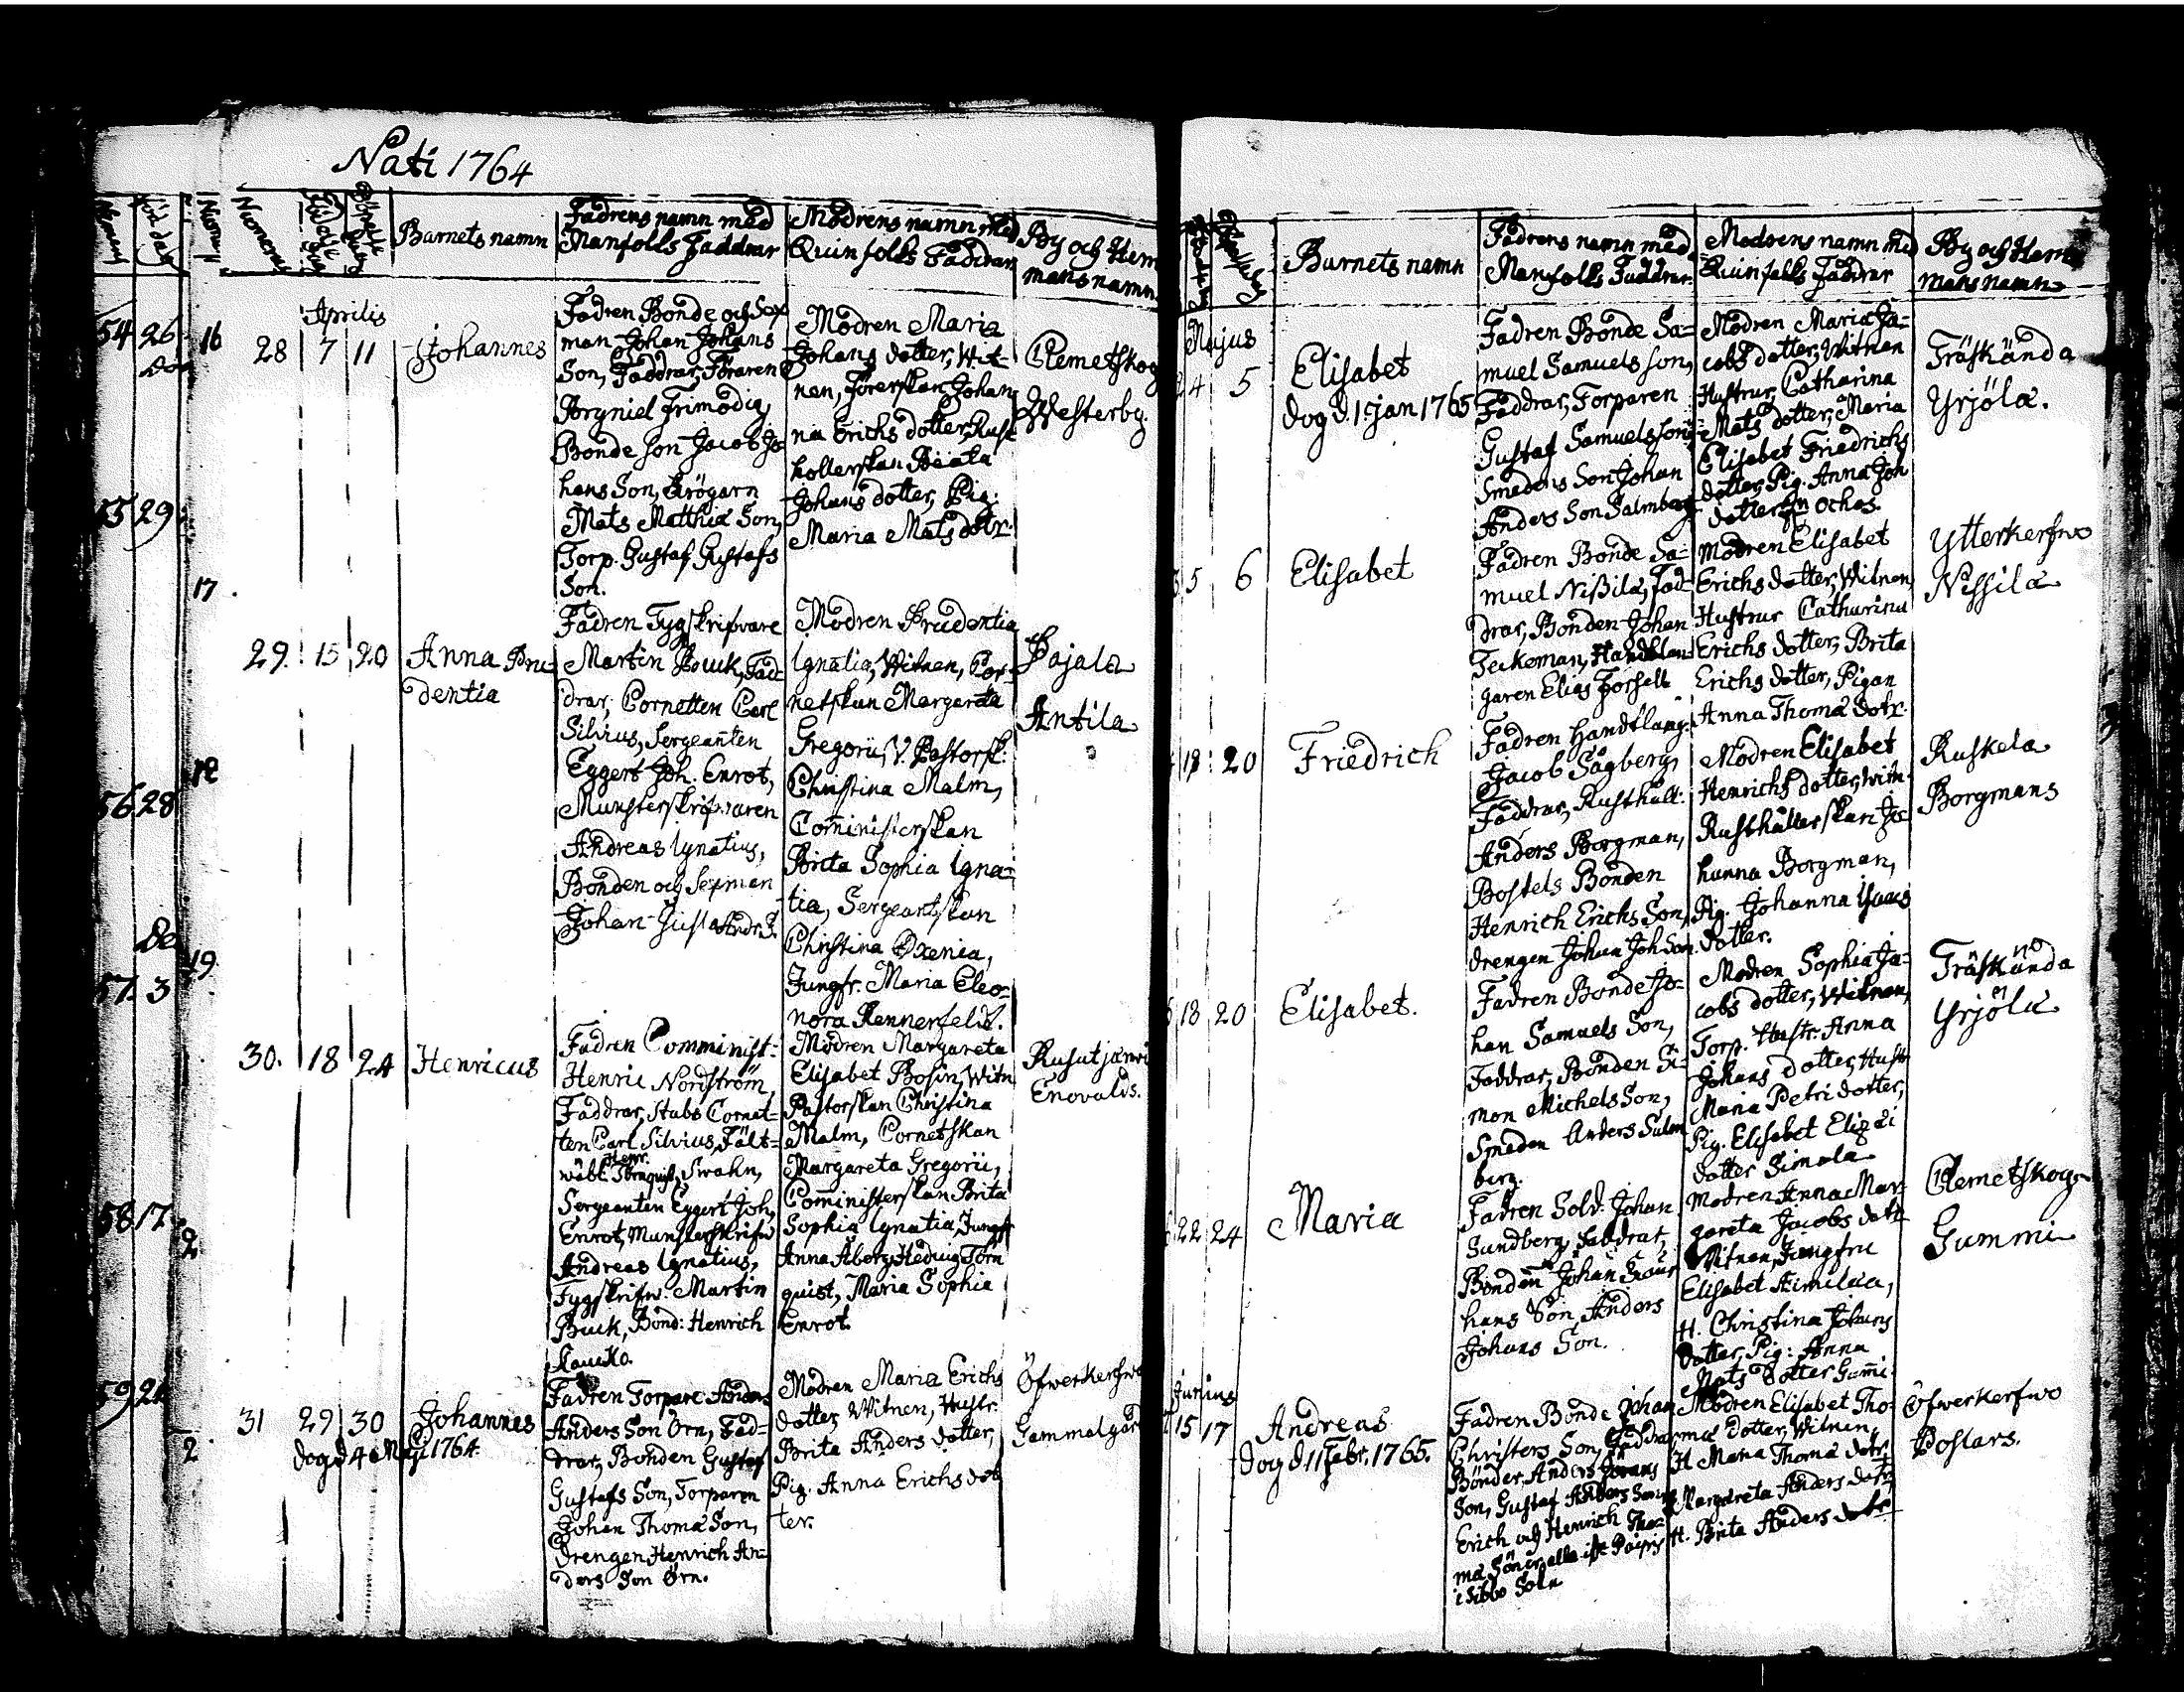 Nati 1764
Numerus
Barnets namn
Fadrens namn med
Manfolks Faddrar
Modrens namn med
Quinfolks Faddrar
By och Hem
mans namn
Aprilis
28 7 11
Johannes
Fadren Bonde och Sex
man Johan Johans
Son, Faddrar, Föraren
Brygniel Frimodig,
Bonde son Jacob Jo
hans Son, Krögarn
Mats Matthiæ Son,
Torp. Gustaf Gustafs
Son.
Modren Maria
Johans dotter, Wit-
nen, Förerskan Johan
na Erichs dotter, Rust
hollerskan Beata
Johans dotter, Pig.
Maria Mats dotr.
Clemetskog
Westerby.
29. 15 20
Anna Pru-
dentia
Fadren Tygskrifvare
Martin Buuk, Fad-
drar, Cornetten Carl
Silvius, Sergeanten
Eggert Joh. Enrot,
Munsterskrifvaren
Andreas Ignatius,
Bonden och Sexman
Johan Gust Andr. S.
Modren Prudentia
Ignatia, Witnen, Cor-
netskan Margareta
Gregorii, V. Pastorsk.
Christina Malm,
Cominiskerskan
Brita Sophia Igna-
tia, Sergeantskan
Christina Oxenia,
Jungfr. Maria Eleo-
nora Rennerfelt.
Pajala
Antila
30. 18 24
Henricus
Fadren Comminist:
Henric Nordström,
Faddrar, Stabs Cornet-
ten Carl Silvius, Fält-
wäbl. Swahn,
Sergeanten Eggert Joh,
Enrot, Munsterskrifw
Andreas Ignatius,
Tygskrifw. Martin
Buuk, Bond: Henrich
Modren Margareta
Elisabet Bosin, Witn
Pastorskan Christina
Malm, Cornetskan
Margareta Gregorii,
Cominiskerskan Brita
Sophia Ignatia, Jungf
Anna Åberg, Hedvig Törn
quist, Maria Sophia
Enrot.
Rusutjärwi
Enovalds.
31 29 30
Johannes
dog d 4 Maji 1764
Fadren Torpare Anders
Anders Son Örn, Fad-
drar, Bonden Gustaf
Gustafs Son, Torparen
Johan Thomæ Son,
Drengen Henrich An-
ders Son Örn.
Modren Maria Erichs
dotter, Witnen, Hustr.
Brita Anders dotter,
Pig. Anna Erichs dot
ter.
Öfwerkerfwo
Gammalgård
Barnets namn
Fadrens namn med
Manfolks Faddrar
Modrens namn med
Quinfolks Faddrar
By och Hem
mans namn
Majus
4 5
Elisabet
dog d. 1 Jan 1765
Fadren Bonde Sa-
muel Samuels son,
Faddrar, Torparen
Gustaf Samuels son,
Smedens Son Johan
Anders Son Salmberg
Modren Maria Ja-
cobs dotter, Witnen
Hustrur, Catharina
Mats dotter, Maria
Elisabet Friedrichs
dotter, Pig. Anna Joh
dotter ochos.
Träskända
Yrjölä.
5 6
Elisabet
Fadren Bonde Sa-
muel Nißilä, Fad-
drar, Bonden Johan
Teckeman, Handtlan-
garen Elias Forsell
Modren Elisabet
Erichs dotter, Witnen,
Hustrur Catharina
Erichs dotter, Brita
Erichs dotter, Pigan
Anna Thomæ dotr.
Ytterkerfwo
Nissilä
18 20
Friedrich
Fadren Handtlang:
Jacob Sågberg,
Faddrar, Rusthåll:
Anders Borgman,
Bostels Bonden
Henrich Erichs Son,
Drengen Johan Joh Son.
Modren Elisabet
Henrichs dotter, Witn.
Rusthållerskan Jo-
hanna Borgman,
Pig. Johanna Isaacs
dotter.
Ruskela
Borgmans
18 20
Elisabet.
Fadren Bonde Jo-
han Samuels Son,
Faddrar, Bonden Si-
mon Michels Son,
Smeden Anders Salm
berg.
Modren Sophia Ja-
cobs dotter, Witnen,
Torp. Hustr. Anna
Johans dotter, Hustr
Maria Petri dotter,
Pig. Elisabet Eliæ
dotter Simola
Träskända
Yrjölä
22 24
Maria
Fadren Sold. Johan
Sundberg, Faddrar,
Bonden Johan
hans Son, Anders
Johans Son.
Modren Anna Mar-
gareta Jacobs dotr
Witnen, Jungfru
Elisabet Aimilæa,
H. Christina Johans
dotter, Pig: Anna
Mats dotter Gumi.
Clemetskog
Gummi
Junius
15 17
Andreas
dog d. 11 Febr. 1765.
Fadren Bonde Johan
Christers Son, Faddrar
Bönder, Anders Jörans
Son, Gustaf Anders Son
Erich och Henrich Tho-
mæ Söner alla
i Sibbo Sokn
Modren Elisabet Tho-
mæ dotter, Witnen,
H. Maria Thomæ dotr
Margareta Anders dotr,
H. Brita Anders dotr
Öfwerkerfwo
Poslars.